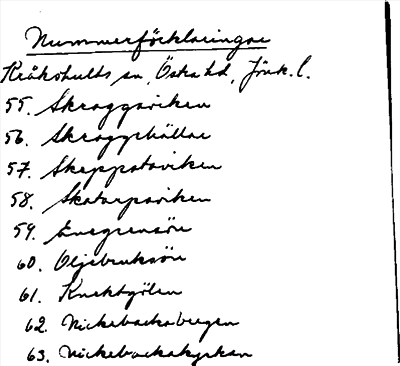 Nummerförklaringar
Kråkshults sn, Östra hd, Jönk. l.
55. Skraggaviken
56. Skraggehällar
57. Skeppstaviken
58. Skatarpsviken
59. Enegrensön
60. Oljebruksön
61. Knektgölen
62. Nickebackabergen
63. Nickebackakyrkan